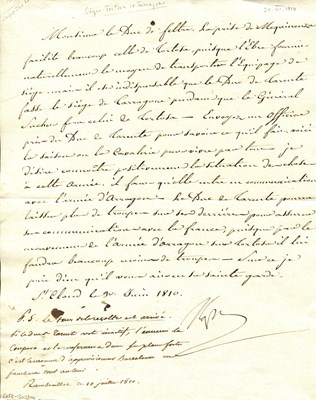 Monsieur le Duc de feltre, La prise de Mequinenza
facilite beaucoup celle de Tortose, puisque l'Ebre fournit
naturellement le moyen de transporter l'équipage de
siège. mais il est indispensable que le Duc de Tarente
fasse le siège de Tarragone pendant que le Général
Suchet fera celui de Tortose — Envoyez un officier
près du Duc de Tarente pour savoir ce qu'il fait. voici
la saison où la Cavalerie pourra vivre par tout — je
désire connaître positivement la situation des choses
à cette Armée. il faut qu'elle entre en communication
avec l'armée d'Arragon — Le Duc de Tarente pourra
laisser plus de troupes sur ses derrières pour assurer
ses communications avec la france, puisque par le
mouvement de l'armée d'arragon sur Tortose il lui
faudra beaucoup moins de troupes — Sur ce je
prie dieu qu'il vous ait en sa sainte garde.
St Cloud le Juin 1810.
P.S.
Le Duc de Tarente reste inactif, l'ennemi
se plus forte
d'approvisionner Barcelone
Rambouillet ce 10 juillet 1810.